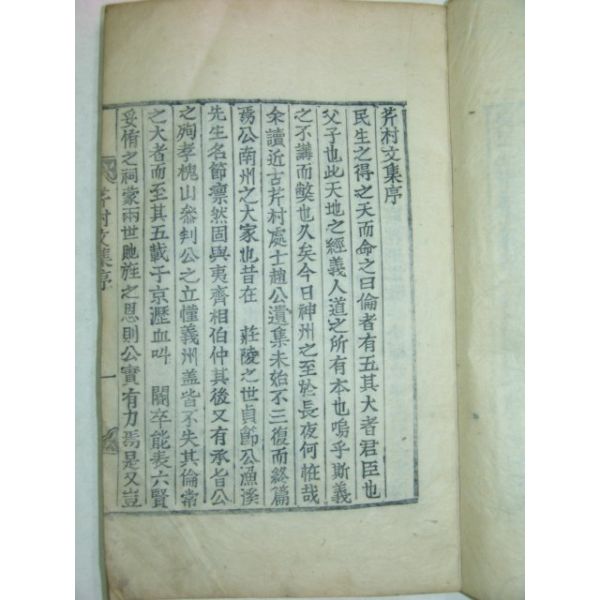 芹村文集序
民生之得之天而命之曰倫者有五其大者君臣也
父子也此天地之經義人道之所有本也嗚乎斯義
之不講而斁也久矣今日神州之至於長夜何恠哉
余讀近古芹村處士趙公遺集未始不三復而終篇
焉公南州之大家也昔在 莊陵之世貞節公漁溪
先生名節凜然固與夷齊相伯仲其後又有承旨公
之殉孝槐山參判公之立慬義州盖皆不失其倫常
之大者而至其五載于京瀝血叫 閽卒能表六賢
妥侑之祠蒙兩世貤旌之恩則公實有力焉是又豈
芹村文集序
一